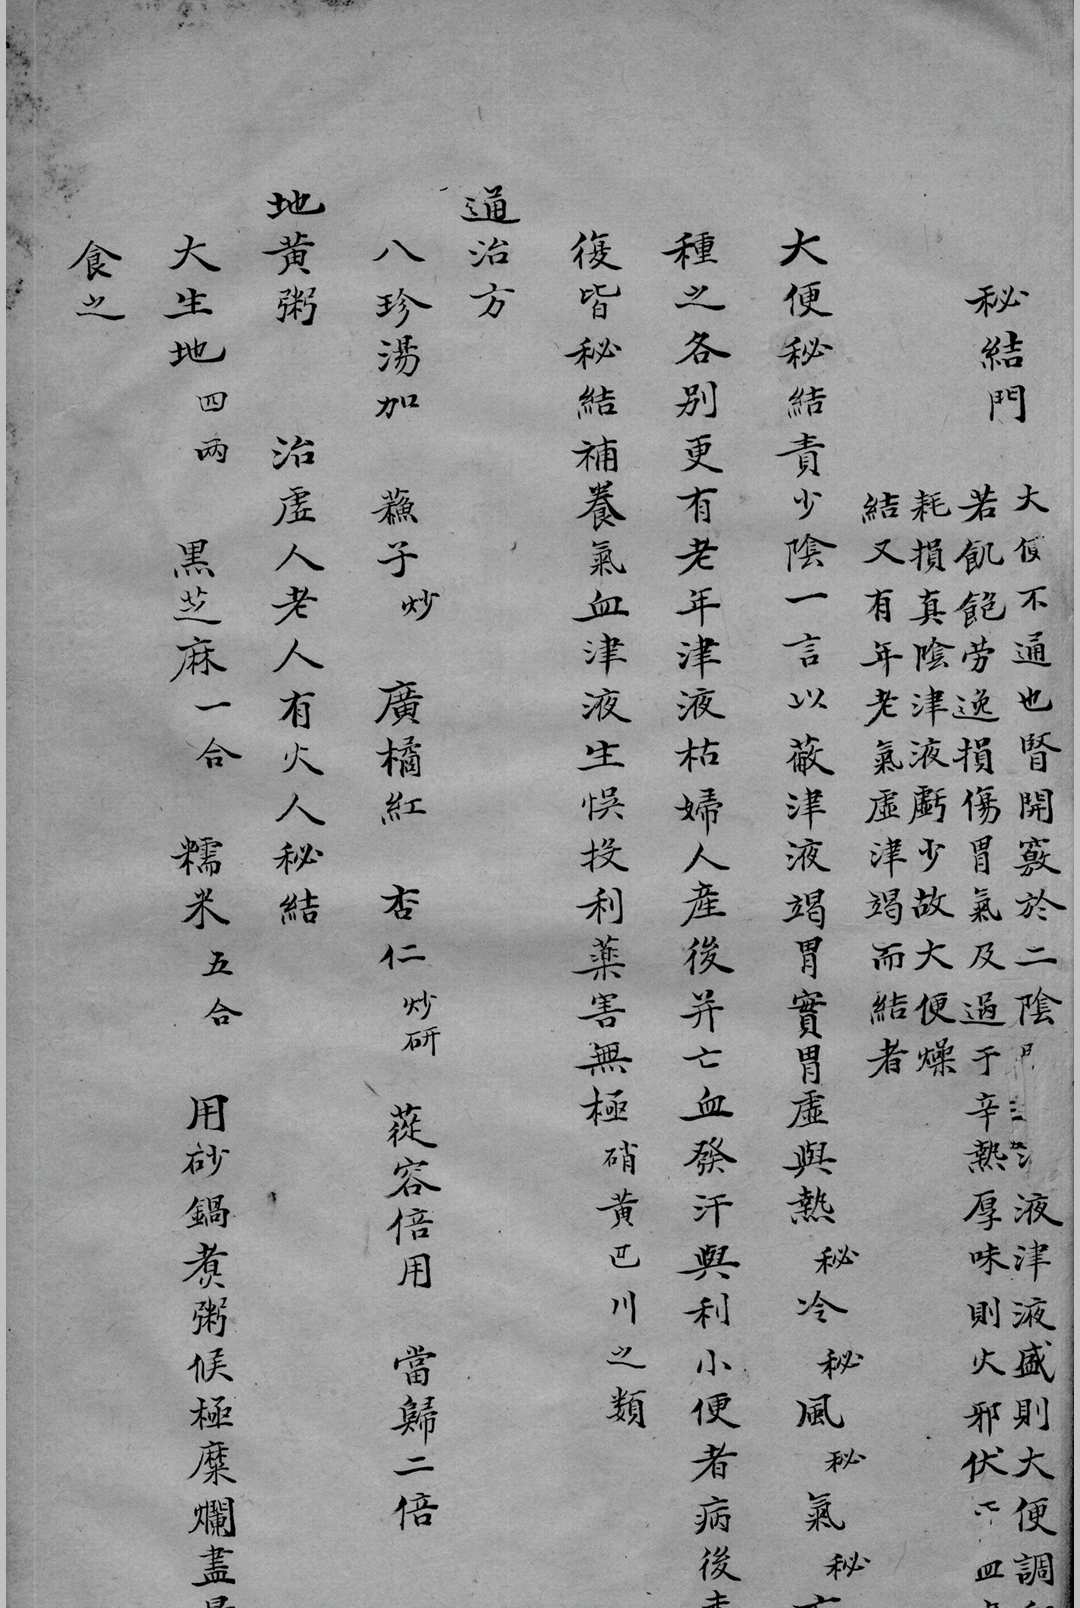 秘結門
大便不通也腎開竅於二陰液津液盛則大便調
若飢飽劳逸損傷胃氣及過于辛熱厚味則火邪伏血
耗損真陰津液虧少故大便燥
結又有年老氣虛津竭而結者
大便秘結責少陰一言以蔽津液竭胃實胃虛與熱秘冷秘風秘氣秘
種之各别更有老年津液枯婦人產後并亡血發汗與利小便者病後
復皆秘結補養氣血津液生悞投利藥害無極硝黃巴川之類
通治方
八珍湯加 蘓子炒 廣橘紅 杏仁炒研 蓯容倍用 當歸二倍
地黃粥 治虛人老人有火人秘結
大生地四両 黒芝麻一合 糯米五合 用砂鍋煮粥候極糜爛盡
食之